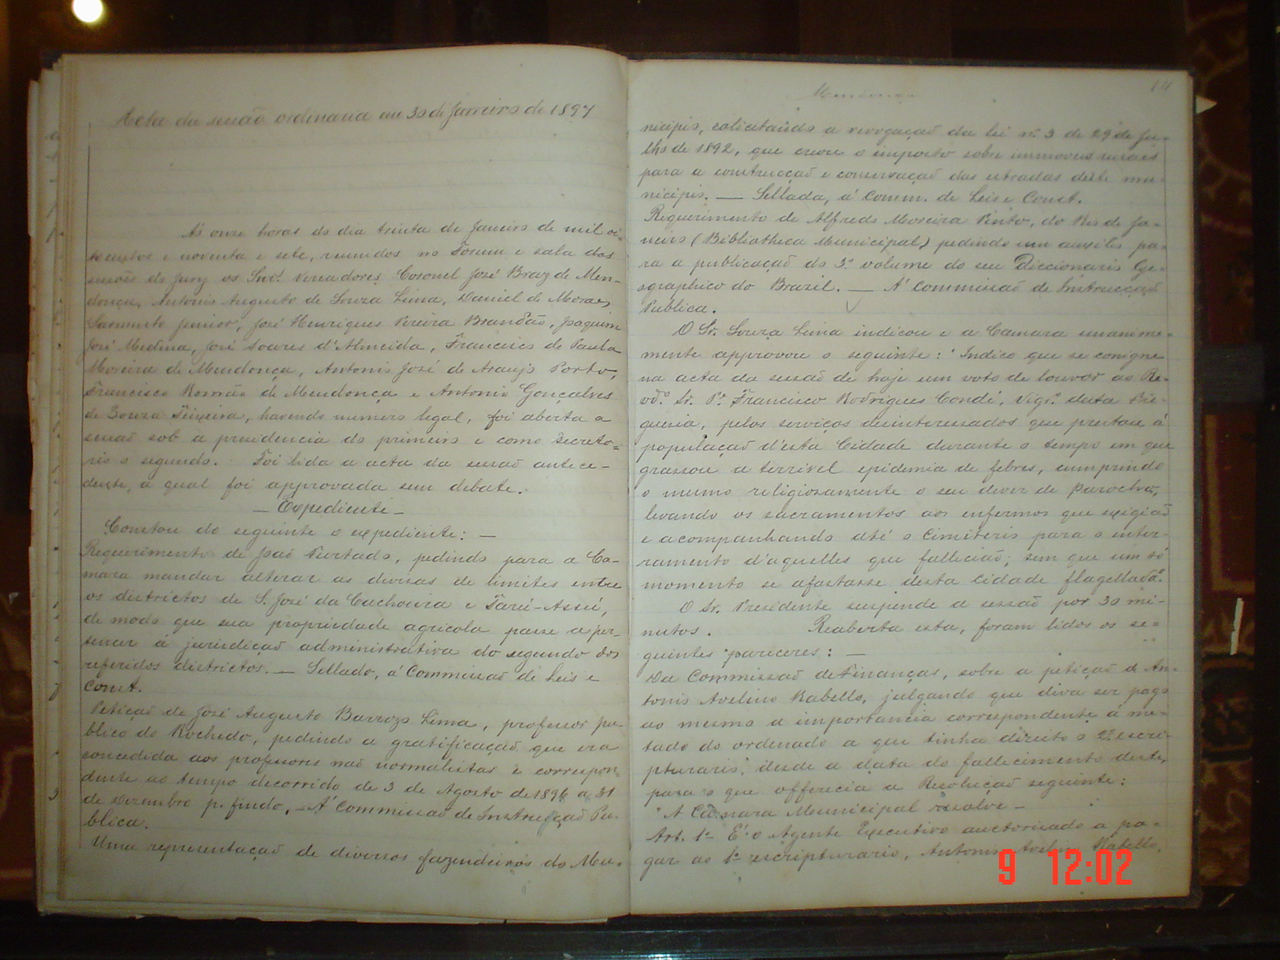 Acta da sessão ordinaria em 30 de Janeiro de 1897
As onze horas do dia trinta de Janeiro de mil oi-
tocentos e noventa e sete, reunidos no Forum e sala das
sessões do Jury os Snrs. Vereadores Coronel José Braz de Men-
donça, Antonio Augusto de Souza Lima, Daniel de Moraes
Sarmento Junior, José Henriques Pereira Brandão, Joaquim
José Medina, José Soares d'Almeida, Francisco de Paula
Moreira de Mendonça, Antonio José de Araujo Porto,
Francisco Romão de Mendonça e Antonio Gonçalves
de Souza Teixeira, havendo numero legal, foi aberta a
sessão sob a presidencia do primeiro e como Secreta-
rio o segundo. Foi lida a acta da sessão antece-
dente, a qual foi approvada sem debate.
— Expediente —
Constou do seguinte o expediente: —
Requerimento de José Furtado, pedindo para a Ca-
mara mandar alterar as divisas de limites entre
os districtos de S. José da Cachoeira e Tarú-Assú,
de modo que sua propriedade agricola passe a per-
tencer á jurisdicção administrativa do segundo dos
referidos districtos. — Sellado, á Commissão de Leis e
Const.
Petição de José Augusto Barrozo Lima, professor pu-
blico do Rochedo, pedindo a gratificação que era
concedida aos professores não normalistas e correspon-
dente ao tempo decorrido de 3 de Agosto de 1896 a 31
de Dezembro p. findo. — A' Commissão de Instrucção Pu-
blica.
Uma representação de diversos fazendeiros do Mu-
nicipio, solicitando a revogação da lei nº 3 de 29 de Ju-
lho de 1892, que creou o imposto sobre immoveis ruraes
para a construcção e conservação das estradas deste mu-
nicipio. — Sellada, á Comm. de Leis e Const.
Requerimento de Alfredo Moreira Pinto, do Rio de Ja-
neiro (Bibliotheca Municipal) pedindo um auxilio pa-
ra a publicação do 3º volume do seu Diccionario Ge-
ographico do Brazil. — A' Commissão de Instrucção
Publica.
O Sr. Souza Lima indicou e a Camara unanime-
mente approvou o seguinte: "Indico que se consigne
na acta da sessão de hoje um voto de louvor ao Re-
vdº. Sr. Pe. Francisco Rodrigues Condé, Vigº desta Fre-
guezia, pelos serviços desinteressados que prestou á
população d'esta Cidade durante o tempo em que
grassou a terrivel epidemia de febres, cumprindo
o mesmo religiosamente o seu dever de Parocho,
levando os sacramentos aos enfermos que exigião
e acompanhando até o Cimiterio para o inter-
ramento d'aquelles que fallecião, sem que um só
momento se afastasse desta cidade flagellada."
O Sr. Presidente suspende a sessão por 30 mi-
nutos. Reaberta esta, foram lidos os se-
guintes pareceres: —
Da Commissão de Finanças, sobre a petição de An-
tonio Avelino Rabello, julgando que deva ser pago
ao mesmo a importancia correspondente á me-
tade do ordenado a que tinha direito o 2º escri-
pturario, desde a data do fallecimento deste,
para o que offerecia a Resolução seguinte:
"A Camara Municipal resolve —
Art. 1º E' o Agente Executivo auctorisado a pa-
gar ao 1º escripturario, Antonio Avelino Rabello,
9 12:02